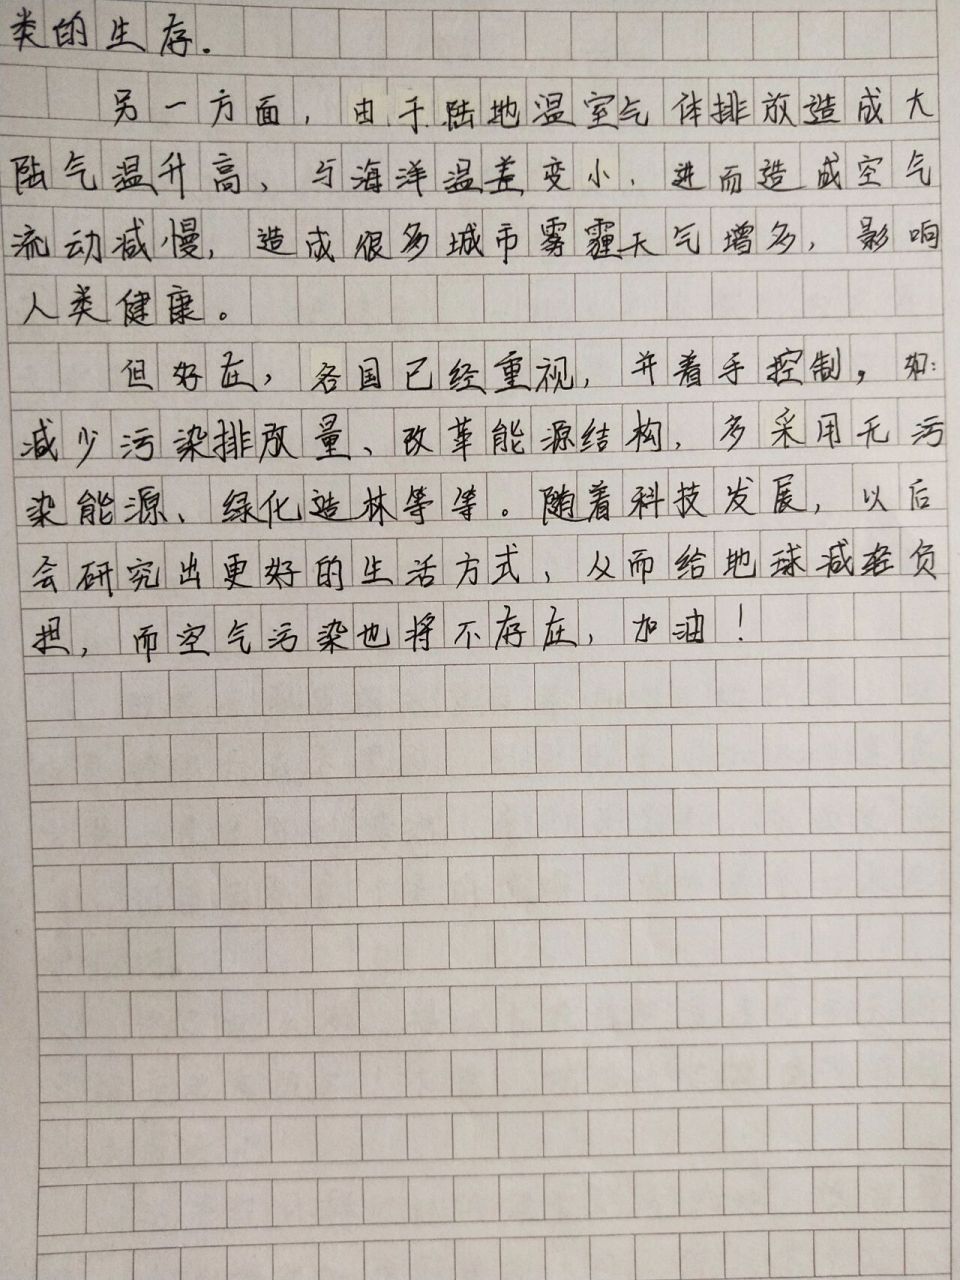 类的生存.
另一方面，由于陆地温室气体排放造成大
陆气温升高、与海洋温差变小．进而造成空气
流动减慢，造成很多城市雾霾天气增多，影响
人类健康。
但好在，各国已经重视，并着手控制，如:
减少污染排放量、改革能源结构，多采用无污
染能源、绿化造林等等。随着科技发展，以后
会研究出更好的生活方式，从而给地球减轻负
担，而空气污染也将不存在，加油！